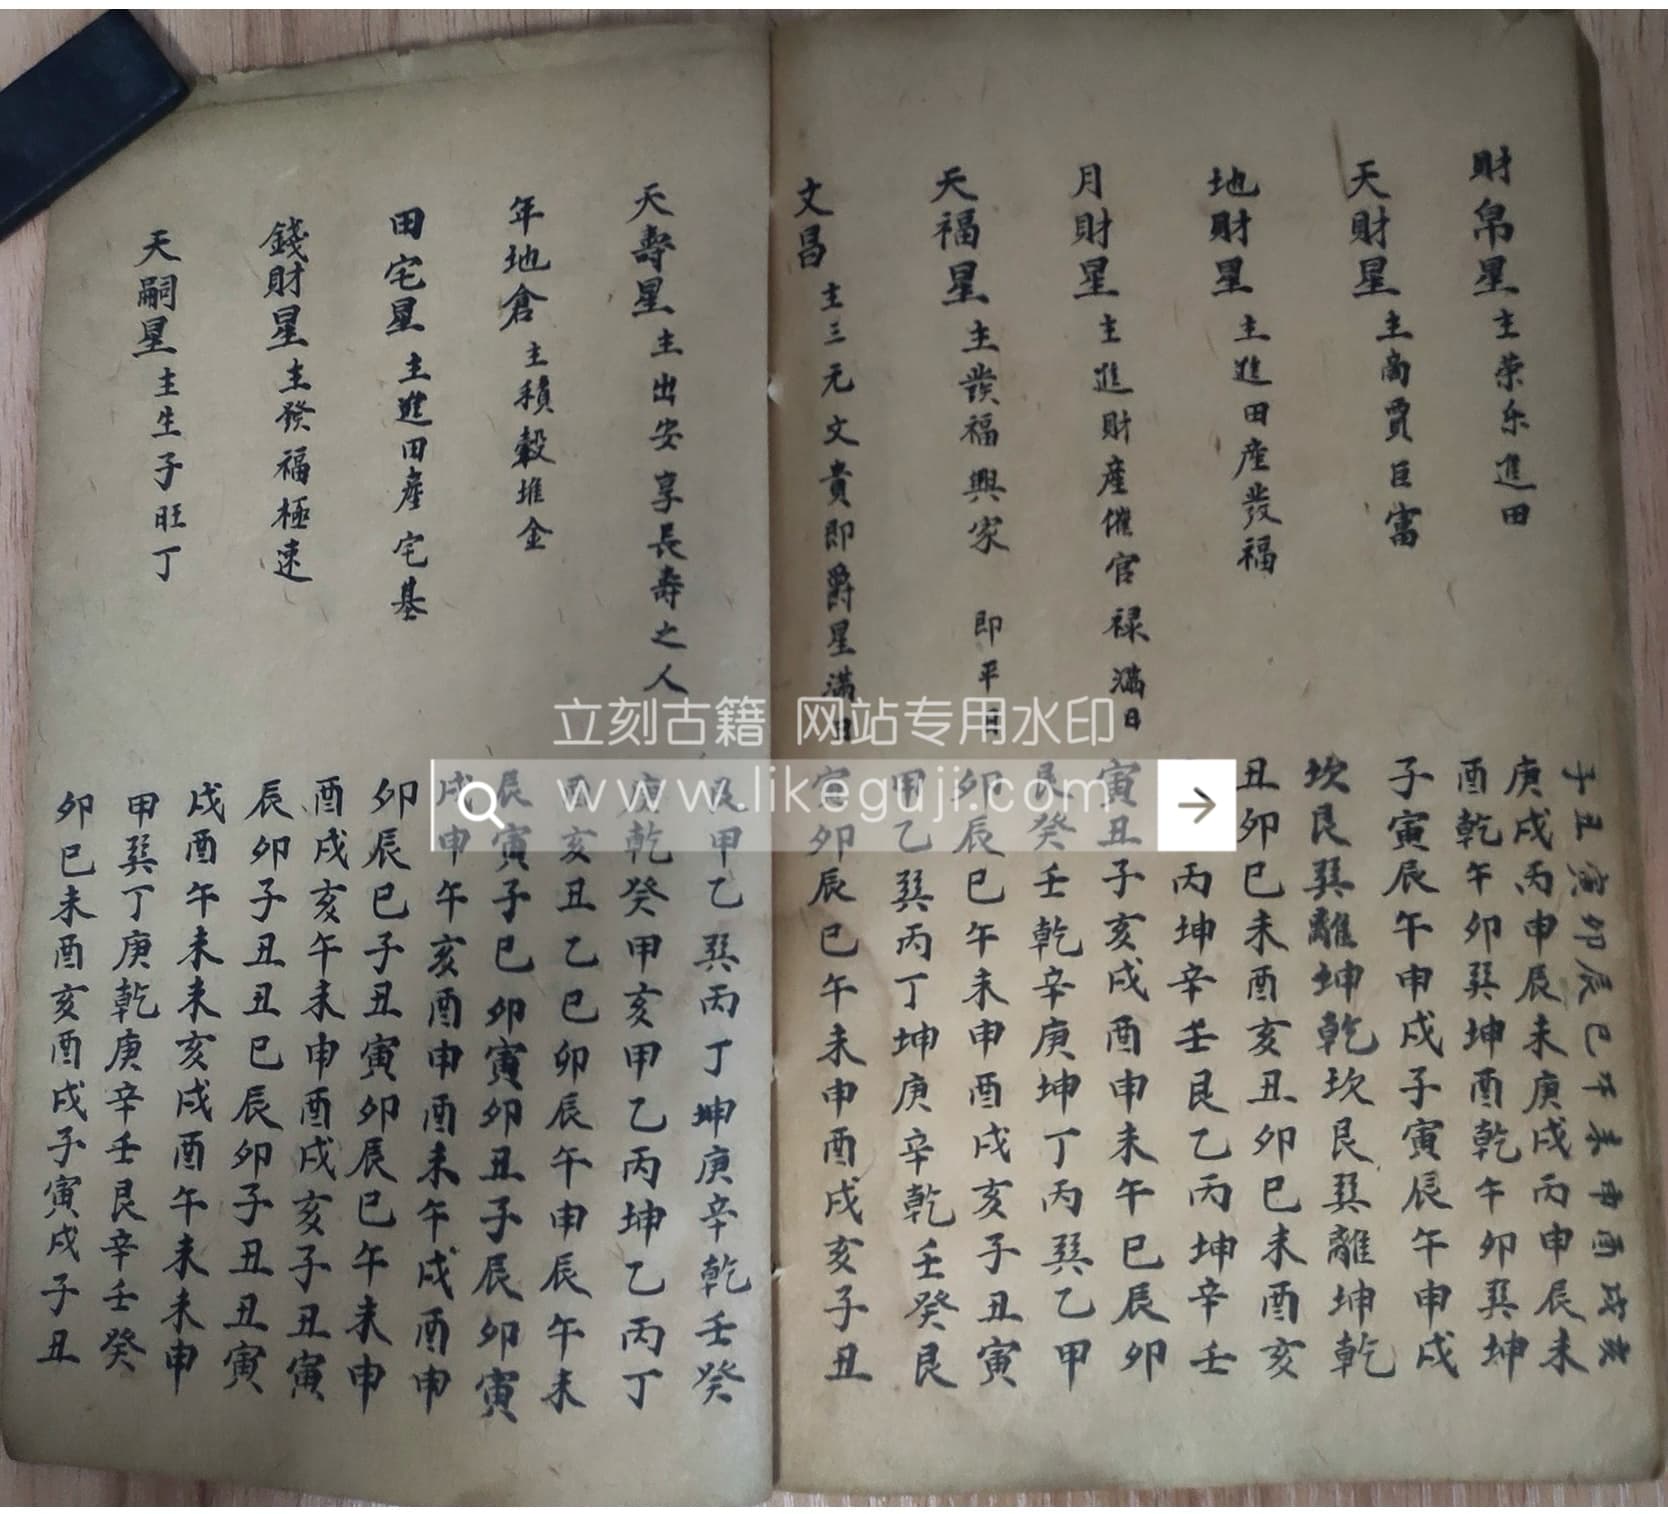 財帛星主荣乐進田
天財星主商賈巨富
地財星主進田產發福
月財星主進財產催官禄滿日
天福星主發福興家 即平日
文昌主三元文貴即爵星滿日
子丑寅卯辰巳午未申酉戌亥
庚戌丙申辰未庚戌丙申辰未
酉乾午卯巽坤酉乾午卯巽坤
子寅辰午申戌子寅辰午申戌
坎艮巽離坤乾坎艮巽離坤乾
丑卯巳未酉亥丑卯巳未酉亥
丙坤辛壬艮乙丙坤辛壬
寅丑子亥戌酉申未午巳辰卯
艮癸壬乾辛庚坤丁丙巽乙甲
卯辰巳午未申酉戌亥子丑寅
甲乙巽丙丁坤庚辛乾壬癸艮
寅卯辰巳午未申酉戌亥子丑
天壽星主出安享長壽之人
年地倉主積穀堆金
田宅星主進田產宅基
錢財星主發福極速
天嗣星主生子旺丁
艮甲乙巽丙丁坤庚辛乾壬癸
庚乾癸甲亥甲乙丙坤乙丙丁
酉亥丑乙巳卯辰午申辰午未
辰寅子巳卯寅卯丑子辰卯寅
戌申午亥酉申酉未午戌酉申
卯辰巳子丑寅卯辰巳午未申
酉戌亥午未申酉戌亥子丑寅
辰卯子丑丑巳辰卯子丑丑寅
戌酉午未未亥戌酉午未未申
甲巽丁庚乾庚辛壬艮辛壬癸
卯巳未酉亥酉戌子寅戌子丑
立刻古籍 网站专用水印
www.likeguji.com